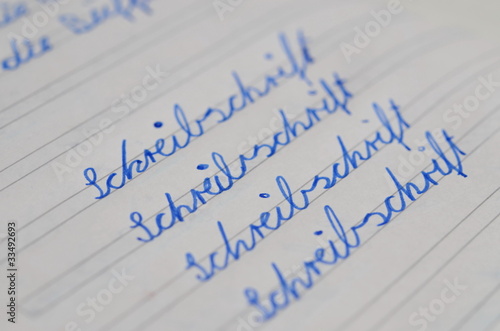 die
Schreibschrift
Schreibschrift
Schreibschrift
Schreibschrift
33492693